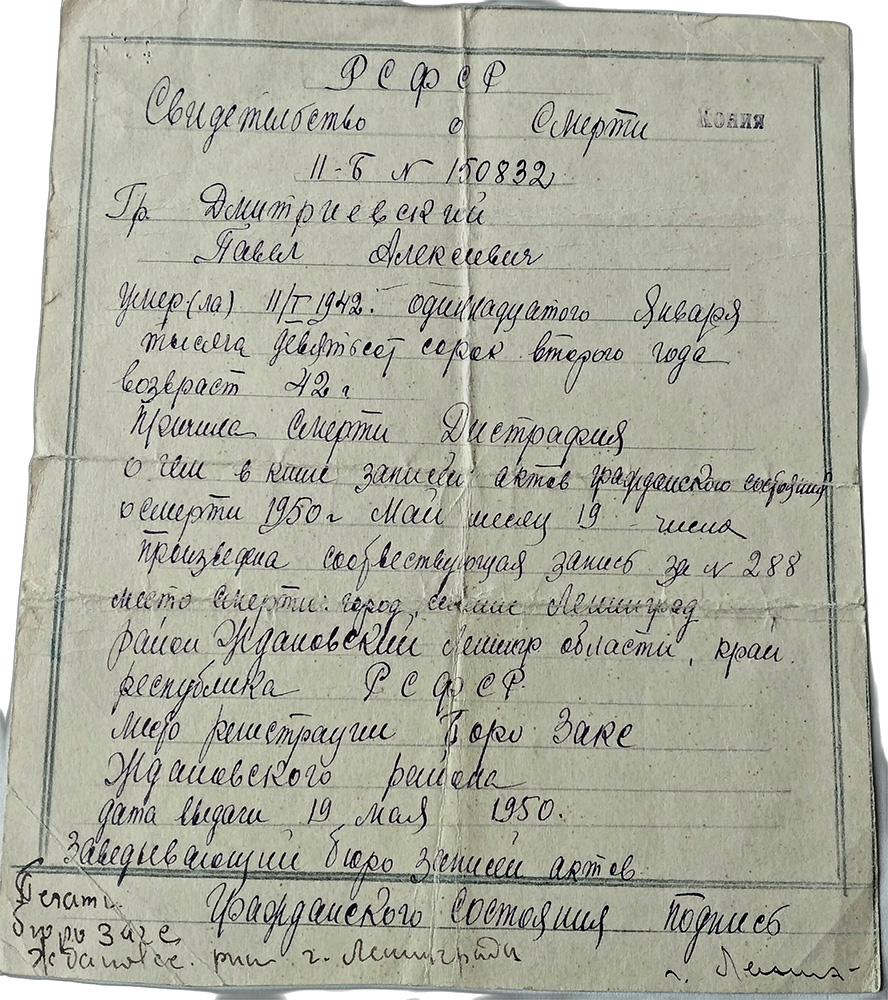 РСФСР
Свидетельство о Смерти Копия
II-Б N 150832
Гр. Дмитриевский
Павел Алексеевич
Умер(ла) 11/I 1942. одиннадцатого Января
тысяча девятьсот сорок второго года
возвраст 42 г
Причина Смерти Дистрафия
о чем в книге записей актов гражданского состояния
о смерти 1950 г Май месяц 19 числа
произведена соотвествующая запись за N 288
место смерти: город, Ленинград
район Ждановский Ленингр области, край.
республика РСФСР.
место регистрации Бюро Загс
Ждановского района
дата выдачи 19 мая 1950.
Заведывающий бюро записей актов
Гражданского Состояния Подпись
Печать
бюро Загс
г. Ленинграда
г.